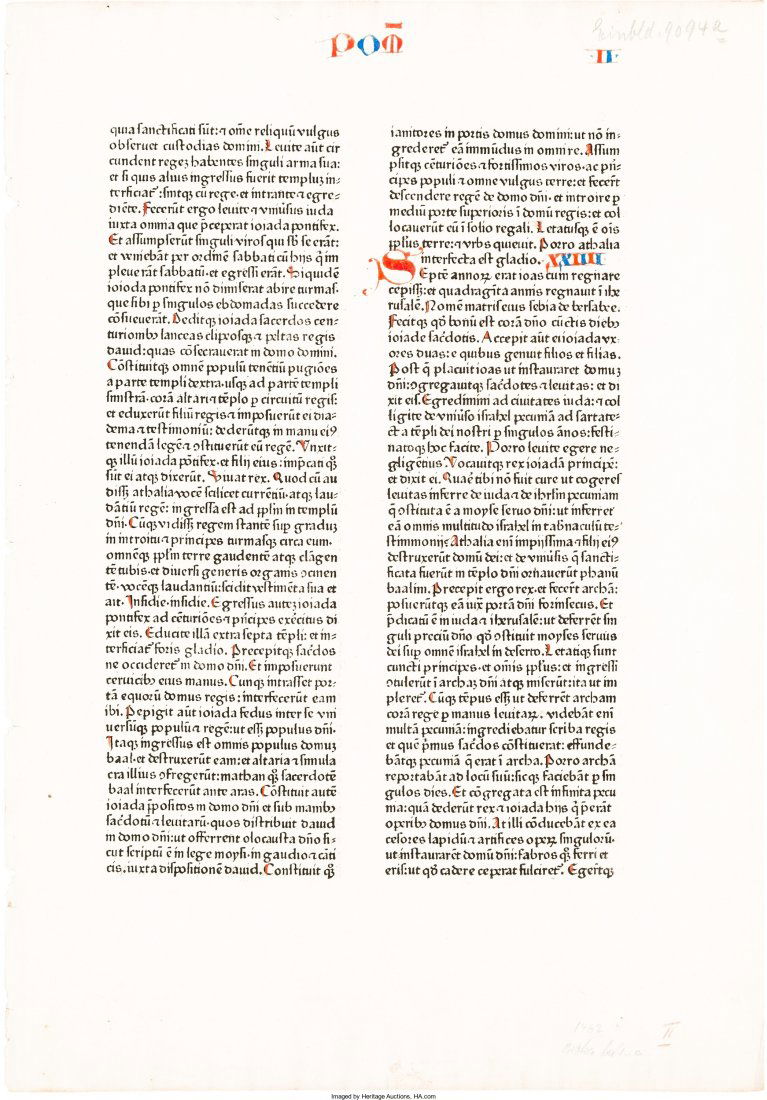 POM̄
II
Einbld. 9094a
quia sanctificati sūt: ⁊ om̄e reliquū vulgus
obseruet custodias domini. Leuite aūt cir
cundent regeʒ habentes singuli arma sua:
et si quis alius ingressus fuerit templuʒ in-
terficiat᷑: sintqꝫ cū rege. et intrante ⁊ egre-
diēte. Fecerūt ergo leuite ⁊ vniūsus iuda
iuxta omnia que p̄ceperat ioiada pontifex.
Et assumpserūt singuli viros qui sƀ se erāt:
et veniebāt per ordinē sabbati cū hijs q̇ im
pleuerāt sabbatū. et egressi erāt. Siquidē
ioioda pontifex nō dimiserat abire turmas.
que sibi ꝑ singulos ebdomadas succedere
cōsueuerāt. Deditqꝫ ioiada sacerdos cen-
turionibꝰ lanceas clipeosqꝫ ⁊ peltas regis
dauid: quas cōsecrauerat in domo domini.
Cōstituitqꝫ omnē populū tenētiū pugiōes
a parte templi dextra. usqꝫ ad partē templi
sinistrā. corā altari ⁊ tēplo ꝑ circuitū regis:
et eduxerūt filiū regis ⁊ imposuerūt ei dia-
dema ⁊ testimoniū: dederūtqꝫ in manu eiꝰ
tenendā legē ⁊ ꝯstituerūt eū regē. Vnxit-
qꝫ illū ioiada pōtifex. et filij eius: imp̄catiqꝫ
sūt ei atqꝫ dixerūt. Viuat rex. Quod cū au
dissꝫ athalia vocē scilicet currētiū. atqꝫ lau-
dātiū regē: ingressa est ad pplm̄ in templū
dn̄i. Cūqꝫ vidissꝫ regem stantē suꝑ graduʒ
in introitu ⁊ principes turmasqꝫ circa eum.
omnēqꝫ pplm̄ terre gaudentē atqꝫ clāgen
tē tubis. et diuersi generis organis ꝯcinen
tē. vocēqꝫ laudantiū: scidit vestimēta sua et
ait. Insidie insidie. Egressus auteʒ ioiada
pontifex ad cēturiōes ⁊ p̄ncipes exēcitus di
xit eis. Educite illā extra septa tēpli: et in-
terficiat᷑ foris gladio. Precepitqꝫ sac̄dos
ne occideret᷑ in domo dn̄i. Et imposuerunt
ceruicibꝰ eius manus. Cunqꝫ intrasset por-
tā equorū domus regis: interfecerūt eam
ibi. Pepigit aūt ioiada fedus inter se vni
uersūqꝫ populū ⁊ regē: ut essꝫ populus dn̄i.
Itaqꝫ ingressus est omnis populus domuʒ
baal. et destruxerūt eam: et altaria ⁊ simula
cra illius ꝯfregerūt: mathan qꝫ sacerdotē
baal interfecerūt ante aras. Cōstituit autē
ioiada p̄positos in domo dn̄i et sub manibꝰ
sac̄dotū ⁊ leuitarū. quos distribuit dauid
in domo dn̄i: ut offerrent olocausta dn̄o si-
cut scriptū ē in lege moysi. in gaudio ⁊ cāti
cis. iuxta dispositionē dauid. Constituit qꝫ
ianitores in portis domus domini: ut nō in-
grederet᷑ eā immūdus in omni re. Assum
psitqꝫ cēturiōes ⁊ fortissimos viros. ac prī-
cipes populi ⁊ omne vulgus terre: et fecer̄t
descendere regē de domo dn̄i. et introire ꝑ
mediū porte superioris ī domū regis: et col
locauerūt eū ī solio regali. Letatusqꝫ ē oīs
pplus terre: ⁊ vrbs quieuit. Porro athalia
interfecta est gladio. XXIIII
Septē annoꝝ erat ioas cum regnare
cepissꝫ: et quadragīta annis regnauit ī ihe
rusalē. Nomē matris eius sebia de bersabee.
Fecitqꝫ qd̄ bonū est corā dn̄o cūctis diebꝰ
ioiade sac̄dotis. Accepit aūt ei ioiada vx
ores duas: e quibus genuit filios et filias.
Post q̄ placuit ioas ut instauraret domuʒ
dn̄i: ꝯgregauitqꝫ sac̄dotes ⁊ leuitas: et di
xit eis. Egredimini ad ciuitates iuda: ⁊ col
ligite de vniūso israhel pecuniā ad sartate-
cta tēpli dei nostri ꝑ singulos ānos: festi-
natoqꝫ hoc facite. Porro leuite egere ne-
gligētius. Vocauitqꝫ rex ioiadā principē:
et dixit ei. Quare tibi nō fuit cure ut cogeres
leuitas inferre de iuda ⁊ de ihrlm̄ pecuniam
q̄ ꝯstituta ē a moyse seruo dn̄i: ut inferret
eā omnis multitudo israhel in tab̄naculū te-
stimonij: Athalia enī impijssima ⁊ filij eiꝰ
destruxerūt domū dei: et de vniūsis q̄ sancti-
ficata fuerūt in tēplo dn̄i ornauerūt phanū
baalim. Precepit ergo rex. et fecer̄t archā:
posuerūtqꝫ eā iux̄ portā dn̄i forinsecus. Et
p̄dicatū ē in iuda ⁊ iherusalē: ut deferrēt sin
guli preciū dn̄o qd̄ ꝯstituit moyses seruus
dei suꝑ omnē israhel in deserto. Letatiqꝫ sunt
cuncti principes. et omīs pplus: et ingressi
ꝯtulerūt ī archaʒ dn̄i atqꝫ miserūt: ita ut im
pleret᷑. Cūqꝫ tēpus essꝫ ut deferrēt archam
corā rege ꝑ manus leuitaꝝ. videbāt enī
multā pecuniā: ingrediebatur scriba regis
et quē p̄mus sac̄dos cōstituerat: effunde-
bātqꝫ pecuniā q̄ erat ī archa. Porro archā
reportabāt ad locū suū: sicqꝫ faciebāt ꝑ sin
gulos dies. Et cōgregata est infinita pecu
nia: quā dederūt rex ⁊ ioiada hijs q̇ p̄erāt
operibꝰ domus dn̄i. At illi cōducebāt ex ea
cesores lapidū ⁊ artifices opeꝝ singuloꝝ.
ut instaurarēt domū dn̄i: fabros qꝫ ferri et
eris: ut qd̄ cadere ceperat fulciret᷑. Eger̄tqꝫ
1462
II
Imaged by Heritage Auctions, HA.com